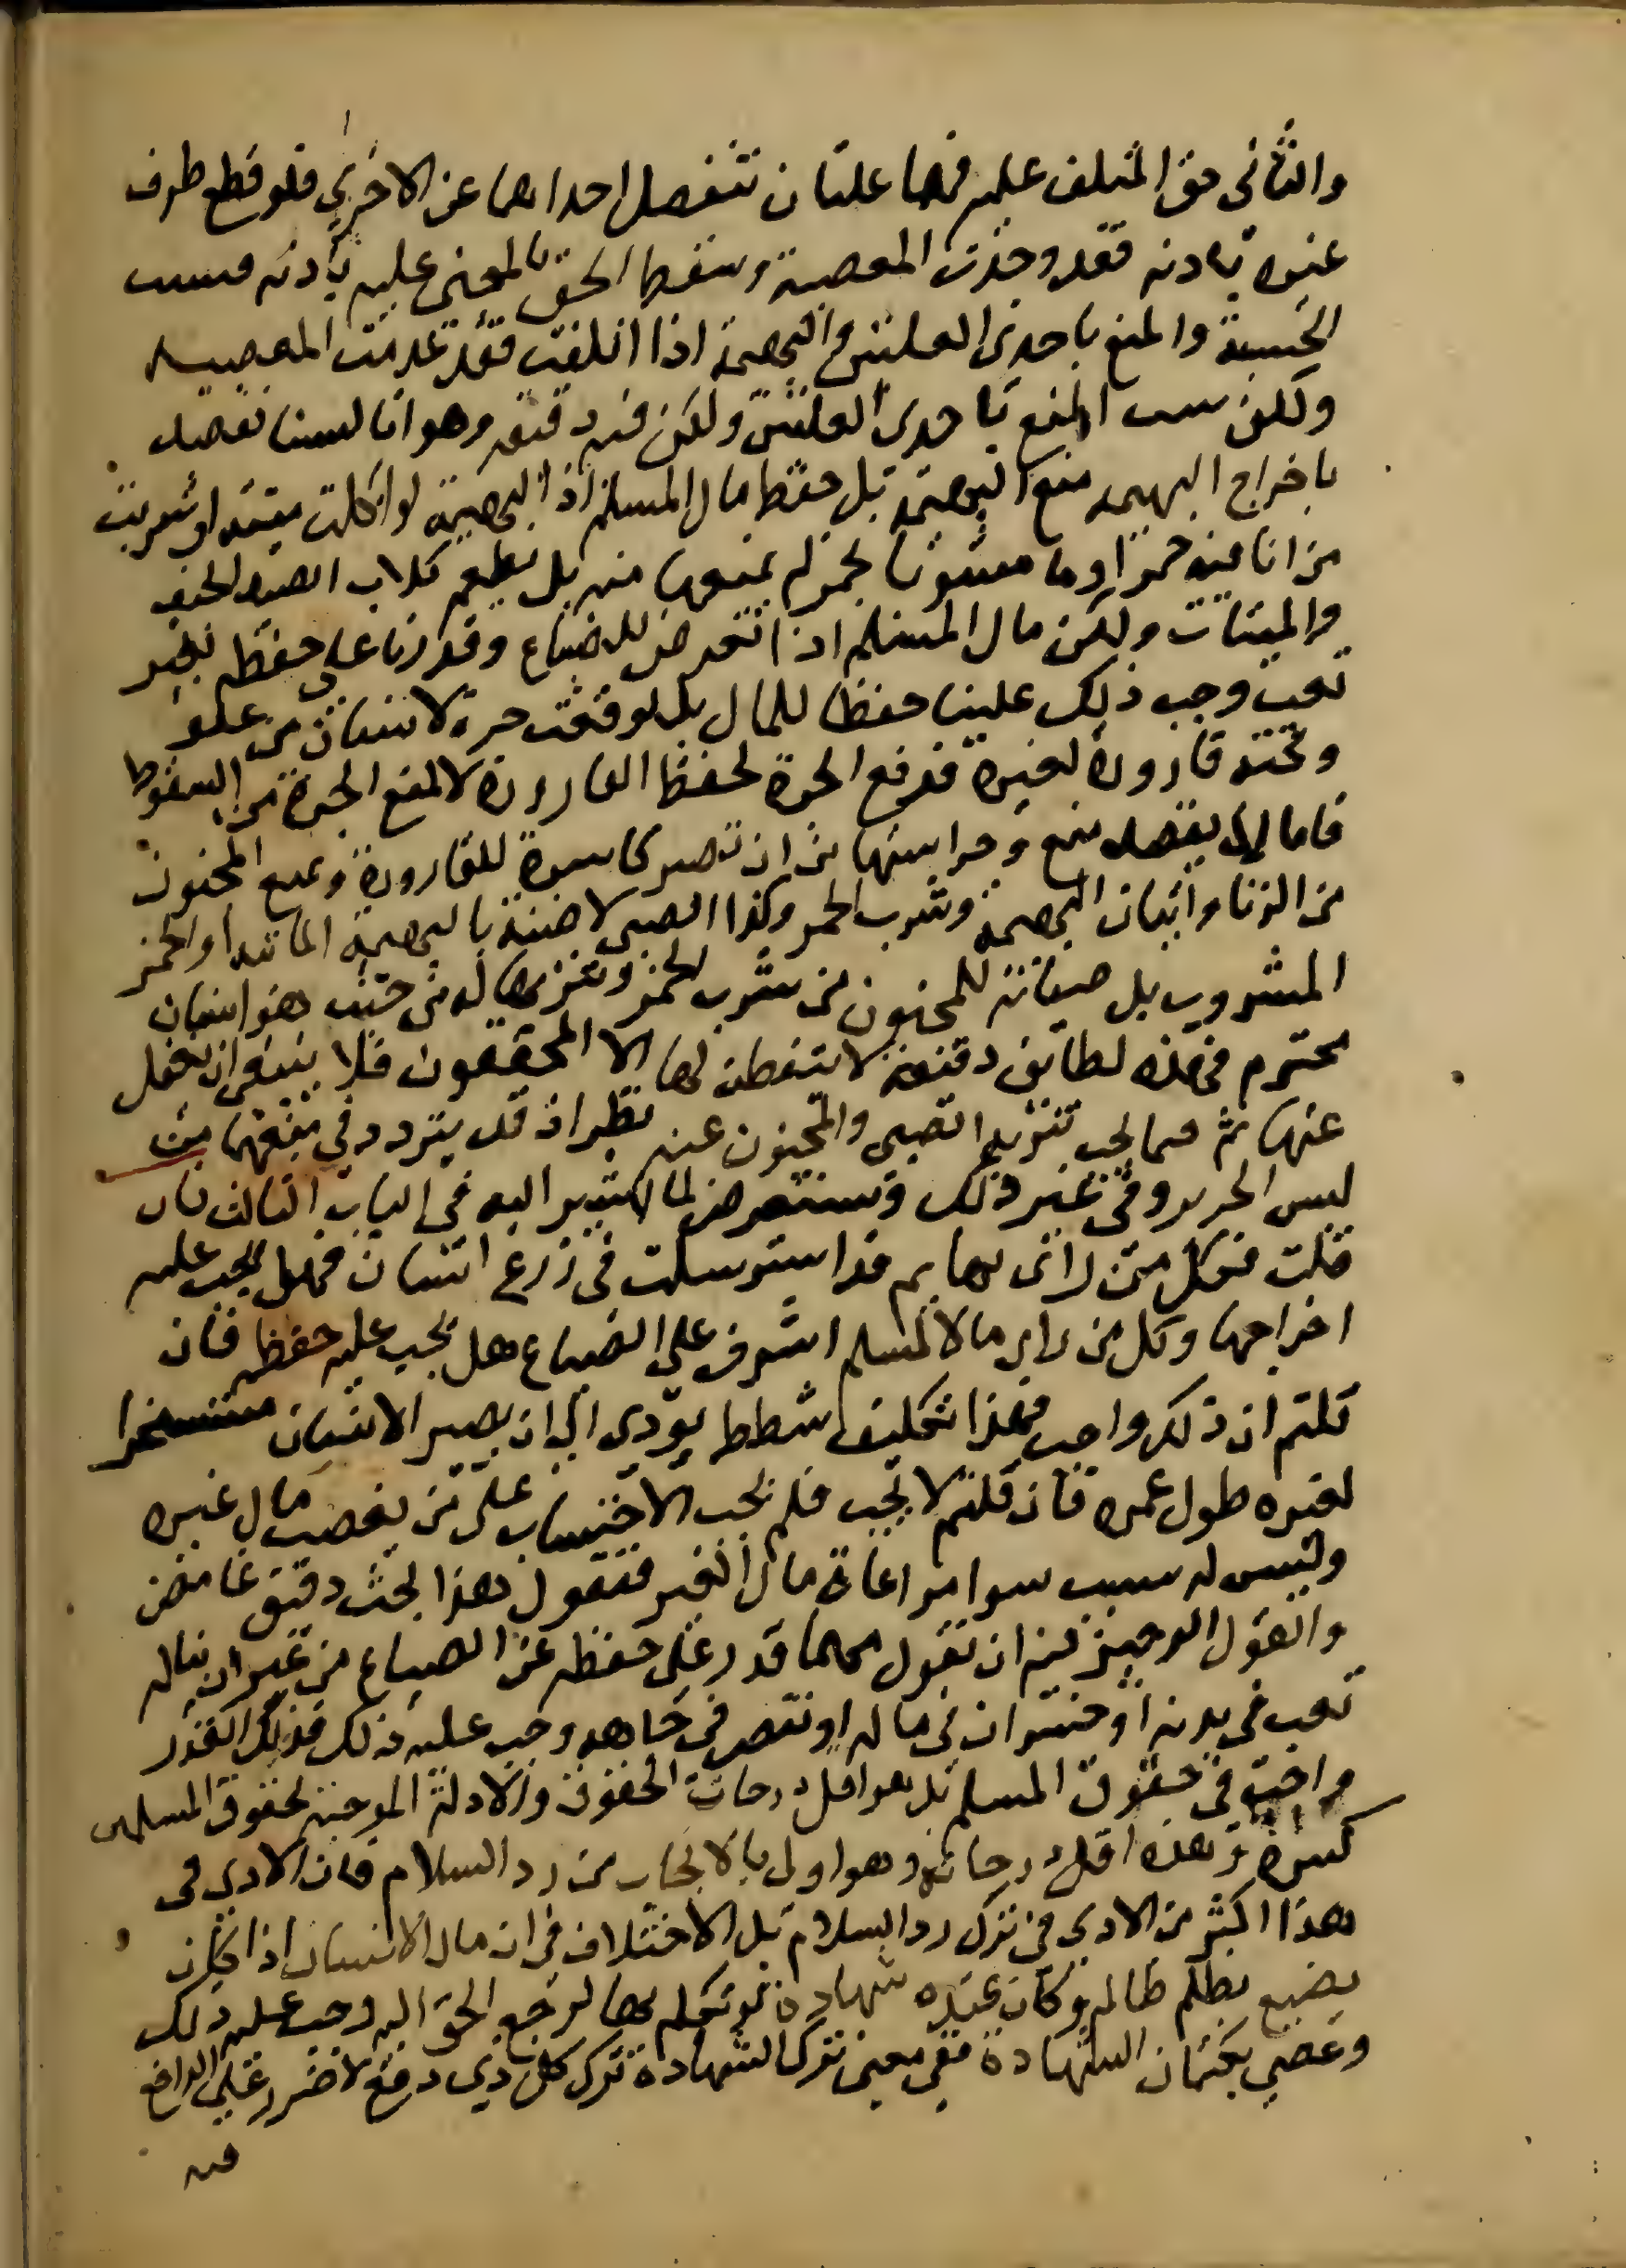 والثانى حق المتلف عليه فهما علتان تنفصل احداهما عن الاخرى فلو قطع طرف
غيره باذنه فقد وجدت المعصية وسقط الحق بالمجنى عليه باذنه فسبب
الحسبة والمنع باحدى العلتين والبهيمة اذا اتلفت فقد عدمت المعصية
ولكن سبب المنع باحدى العلتين ولكن فيه دقيقه وهو انا لسنا نقصد
باخراج البهيمه منع البهيمة بل حفظ مال المسلم اذ البهيمة لو اكلت ميتة او شربت
من انا فيه خمر او ما مشوبا بخمر لم نمنعها منه بل نطعم كلاب الصيد الجيف
والميتات ولكن مال المسلم اذا تعرض للضياع وقدرنا على حفظه بغير
تعب وجب ذلك علينا حفظا للمال بل لو وقعت جرة لانسان من علو
وتحته قارورة لغيره فدفع الجرة لحفظ القارورة لا لمنع الجرة من السقوط
فاما لا نقصد منع وحراستها من ان تصير كاسرة للقارورة ونمنع المجنون
من الزنا واتيان البهيمة وشرب الخمر وكذا الصبى لا صيانة بالبهيمة الماتيه او الخمر
المشروب بل صيانة للمجنون من شرب الخمر وتنزيها له من حيث هو انسان
محترم فهذه لطائف دقيقة لا يتفطن لها الا المحققون فلا ينبغى ان نغفل
عنها ثم فيما يجب تنزيه الصبى والمجنون عنه نظر اذ قد يتردد فى منعهما من
لبس الحرير وفى غير ذلك وسنتعرض لما نشير اليه فى الباب الثالث فان
قلت فكل من راى بهايم قد استرسلت فى زرع انسان فهل يجب عليه
اخراجها وكل من راى مالا لمسلم اشرف على الضياع هل يجب عليه حفظه فان
قلتم ان ذلك واجب فهذا تكليف شطط يؤدى الى ان يصير الانسان مسخرا
لغيره طول عمره فان قلتم لا يجب فلم يجب الاحتساب على من يغصب مال غيره
وليس له سبب سوا مراعاة مال الغير فنقول هذا بحث دقيق غامض
والقول الوجيز فيه ان نقول مهما قدر على حفظه عن الضياع من غير ان يناله
تعب فى بدنه او خسران فى ماله او نقص فى جاهه وجب عليه ذلك فذلك القدر
واجب فى حقوق المسلم بل هو اقل درجات الحقوق والادلة الموجبة لحقوق المسلمين
كثيرة وهذه اقل درجاتها وهو اولى بالايجاب من رد السلام فان الاذى فى
هذا اكثر من الاذى فى ترك رد السلام بل لا اختلاف فى ان مال الانسان اذا كان
يضيع بظلم ظالم وكان عنده شهادة لو تكلم بها لرجع الحق اليه وجب عليه ذلك
وعصى بكتمان الشهادة ففى معنى ترك الشهادة ترك كل ذى دفع لا ضرر على الدافع
فيه